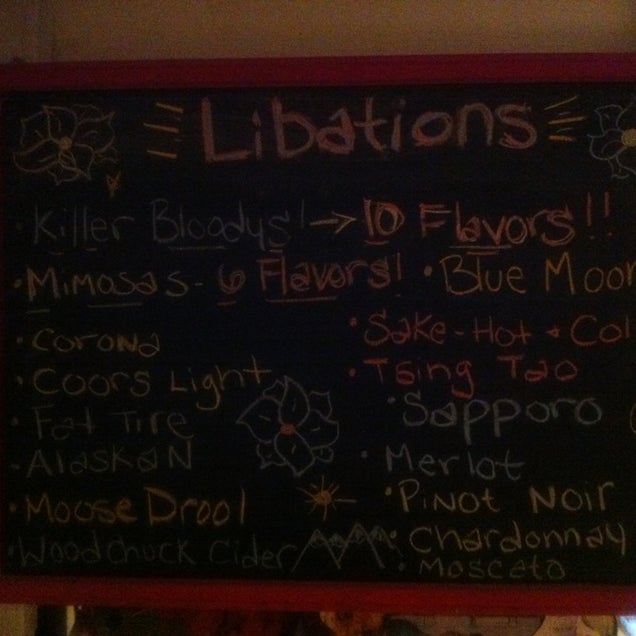 Libations
· Killer Bloodys! → 10 Flavors!!
· Mimosas - 6 Flavors! · Blue Moon
· Corona
· Sake - Hot + Col
· Coors Light
· Tsing Tao
· Fat Tire
· Sapporo
· Alaskan
· Merlot
· Moose Drool
· Pinot Noir
· Woodchuck Cider
· Chardonnay
· Mosceto